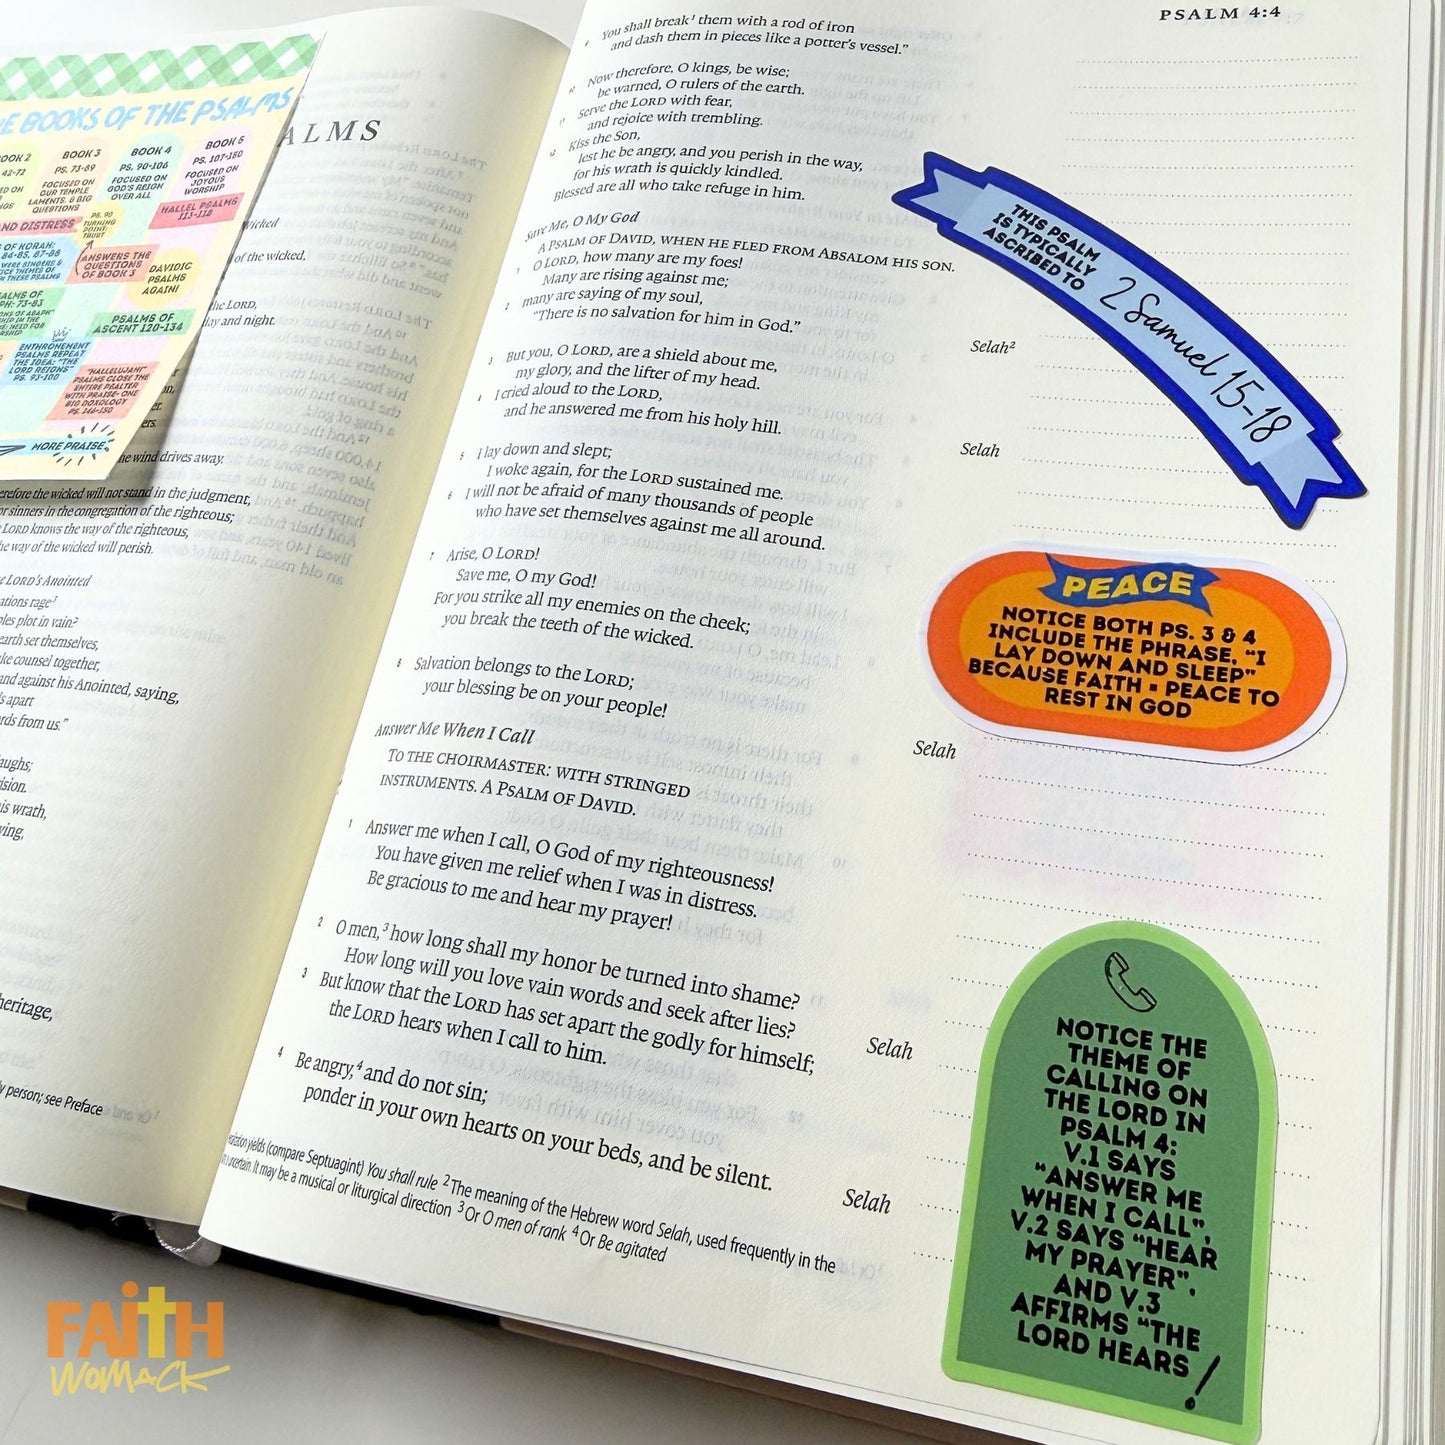 E BOOKS OF THE PSALMS
BOOK 2
42-72
BOOK 3
PS. 73-89
FOCUSED ON
OUR TEMPLE
LAMENTS, & BIG
QUESTIONS
BOOK 4
PS. 90-106
FOCUSED ON
GOD'S REIGN
OVER ALL
BOOK 5
PS. 107-150
FOCUSED ON
JOYOUS
WORSHIP
HALLEL PSALMS
113-118
AND DISTRESS
PS. 90
TURNING
POINT:
TRUST
OF KORAH:
84-85, 87-88
WERE SINGERS &
THESE PSALMS
ANSWERS THE
QUESTIONS
OF BOOK 3
DAVIDIC
PSALMS
AGAIN!
PSALMS OF
73-83
PSALMS OF
ASCENT 120-134
ENTHRONEMENT
PSALMS REPEAT
THE IDEA: "THE
LORD REIGNS"
PS. 93-100
"HALLELUJAH!"
PSALMS CLOSE THE
ENTIRE PSALTER
WITH PRAISE- ONE
BIG DOXOLOGY
PS. 146-150
MORE PRAISE
ALMS
Wicked
of the wicked,
the LORD,
day and night.
he wind drives away.
erefore the wicked will not stand in the judgment,
or sinners in the congregation of the righteous;
e LORD knows the way of the righteous,
he way of the wicked will perish.
e LORD's Anointed
ations rage
ples plot in vain?
earth set themselves,
ake counsel together,
and against his Anointed, saying,
s apart
ords from us."
aughs;
ision.
is wrath,
ying,
heritage,
y person; see Preface
PSALM 4:4
9 You shall break¹ them with a rod of iron
and dash them in pieces like a potter's vessel."
10 Now therefore, O kings, be wise;
be warned, O rulers of the earth.
11 Serve the LORD with fear,
and rejoice with trembling.
12 Kiss the Son,
lest he be angry, and you perish in the way,
for his wrath is quickly kindled.
Blessed are all who take refuge in him.
Save Me, O My God
A PSALM OF DAVID, WHEN HE FLED FROM ABSALOM HIS SON.
1 O LORD, how many are my foes!
Many are rising against me;
2 many are saying of my soul,
"There is no salvation for him in God."
Selah²
3 But you, O LORD, are a shield about me,
my glory, and the lifter of my head.
4 I cried aloud to the LORD,
and he answered me from his holy hill.
Selah
5 I lay down and slept;
I woke again, for the LORD sustained me.
6 I will not be afraid of many thousands of people
who have set themselves against me all around.
7 Arise, O LORD!
Save me, O my God!
For you strike all my enemies on the cheek;
you break the teeth of the wicked.
8 Salvation belongs to the LORD;
your blessing be on your people!
Selah
Answer Me When I Call
TO THE CHOIRMASTER: WITH STRINGED
INSTRUMENTS. A PSALM OF DAVID.
1 Answer me when I call, O God of my righteousness!
You have given me relief when I was in distress.
Be gracious to me and hear my prayer!
2 O men,³ how long shall my honor be turned into shame?
How long will you love vain words and seek after lies?
Selah
3 But know that the LORD has set apart the godly for himself;
the LORD hears when I call to him.
4 Be angry,⁴ and do not sin;
ponder in your own hearts on your beds, and be silent.
Selah
yields (compare Septuagint) You shall rule ² The meaning of the Hebrew word Selah, used frequently in the
uncertain. It may be a musical or liturgical direction ³ Or O men of rank ⁴ Or Be agitated
THIS PSALM
IS TYPICALLY
ASCRIBED TO
2 Samuel 15-18
PEACE
NOTICE BOTH PS. 3 & 4
INCLUDE THE PHRASE, "I
LAY DOWN AND SLEEP"
BECAUSE FAITH = PEACE TO
REST IN GOD
NOTICE THE
THEME OF
CALLING ON
THE LORD IN
PSALM 4:
V.1 SAYS
"ANSWER ME
WHEN I CALL",
V.2 SAYS "HEAR
MY PRAYER",
AND V.3
AFFIRMS "THE
LORD HEARS!
FAITH
WOMACK